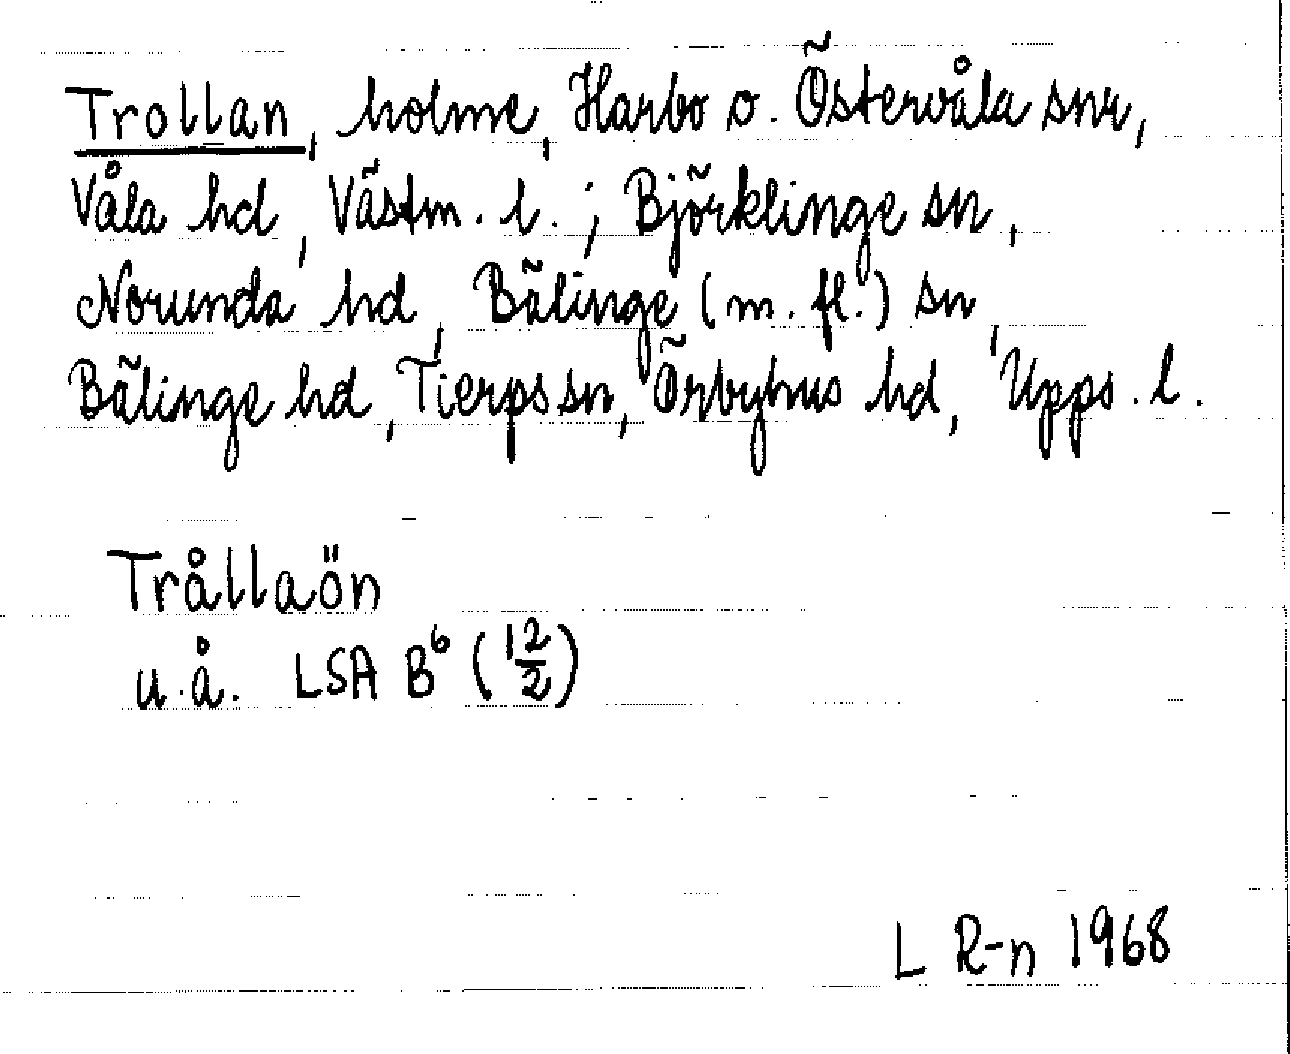 Trollan, holme, Harbo o. Östervåla snr,
Våla hd, Västm. l.; Björklinge sn,
Norunda hd, Bälinge (m. fl.) sn,
Bälinge hd, Tierps sn, Örbyhus hd, Upps. l.
Trållaön
u.å. LSA B⁶ (12/2)
L R-n 1968